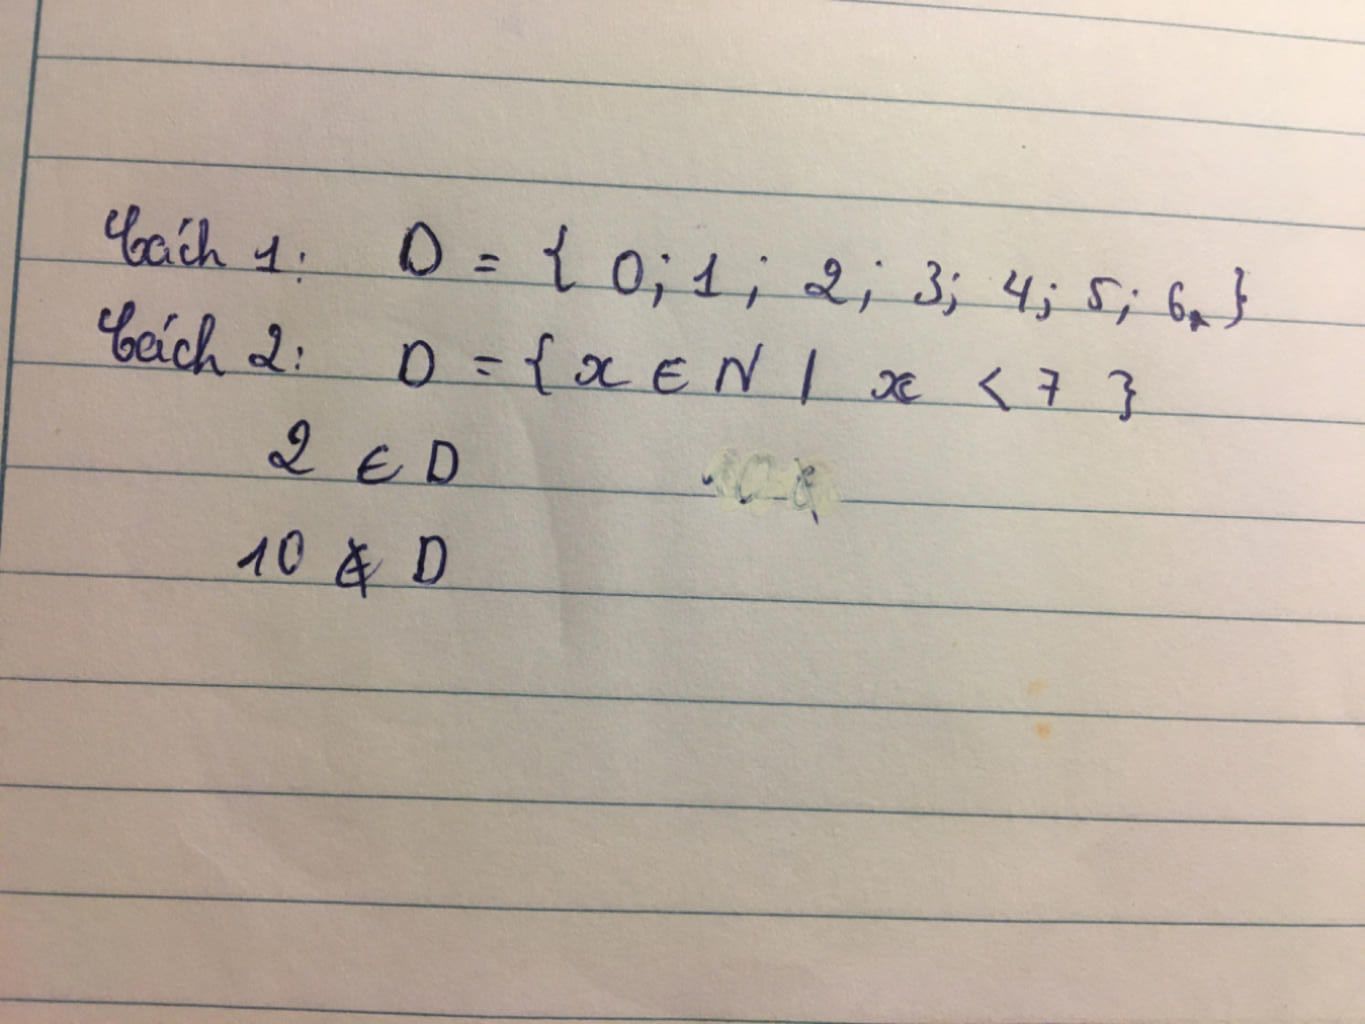 Cách 1: D = { 0; 1; 2; 3; 4; 5; 6 }
Cách 2: D = { x ∈ N | x < 7 }
2 ∈ D
10 ∉ D